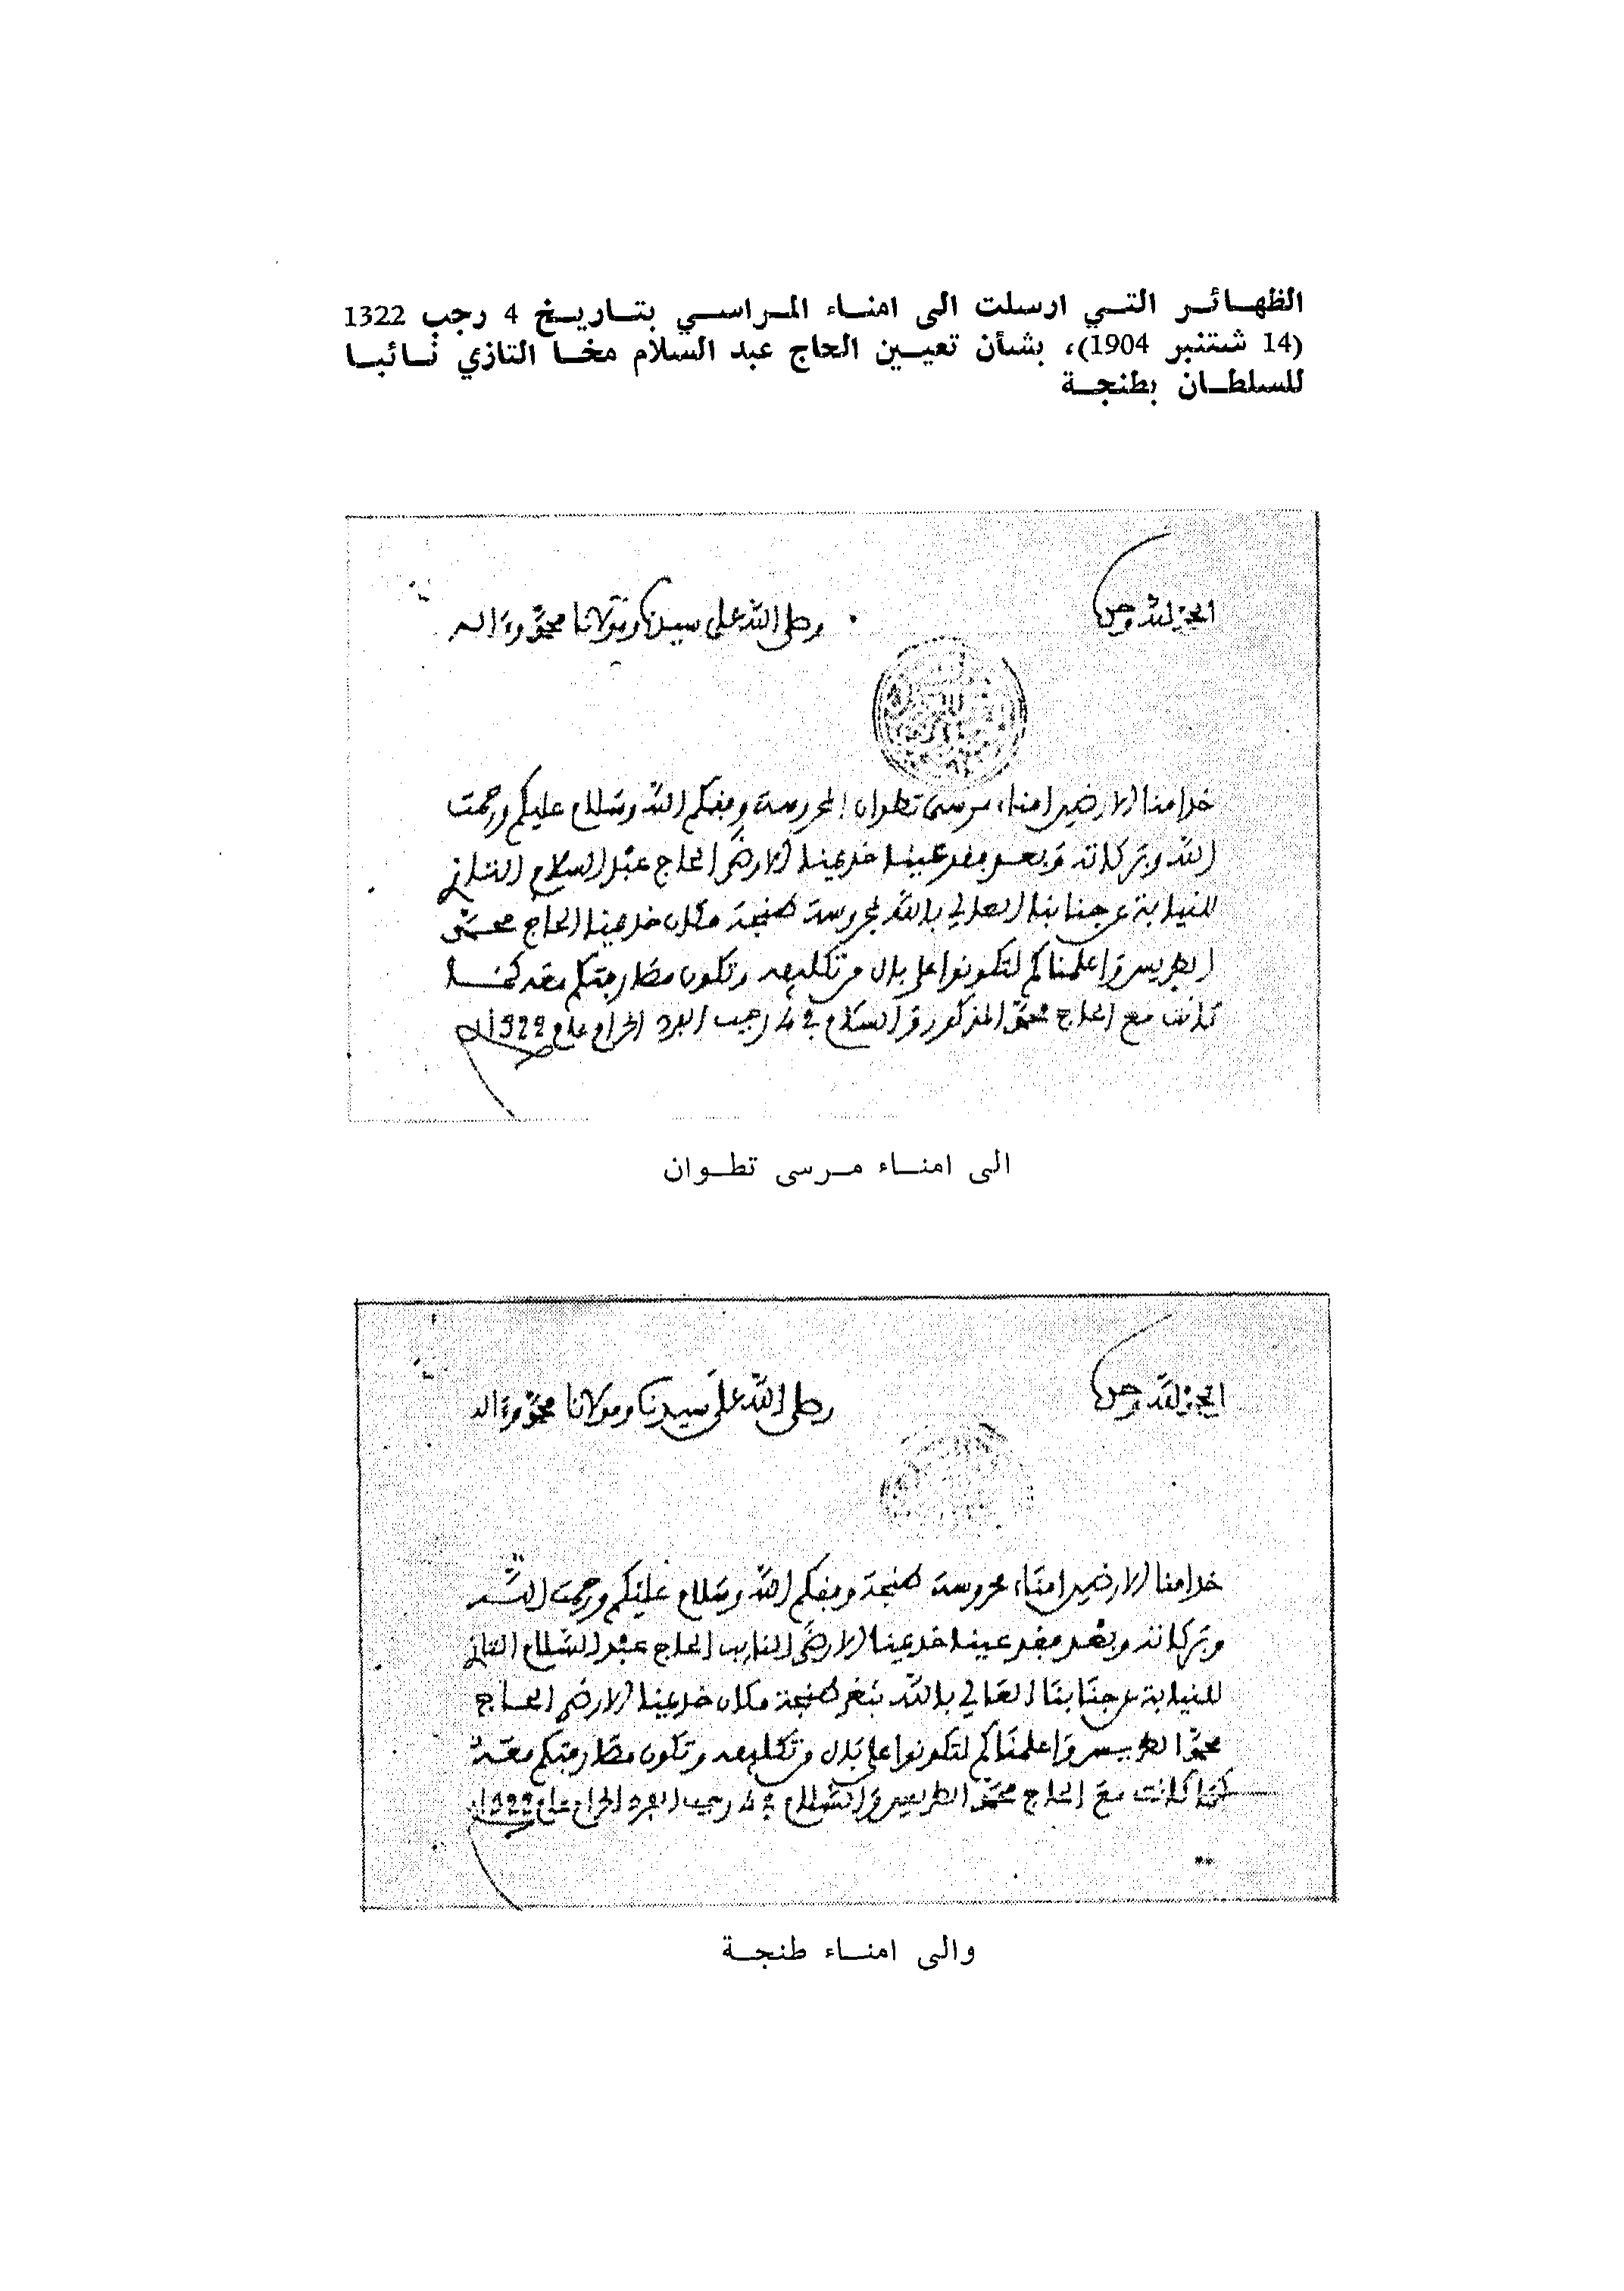 الظهائر التي ارسلت الى امناء المراسي بتاريخ 4 رجب 1322
(14 شتنبر 1904)، بشأن تعيين الحاج عبد السلام مخا التازي نائبا
للسلطان بطنجة
الحمد لله وحده
وصلى الله على سيدنا ومولانا محمد وءاله
خدامنا الارضين امناء مرسى تطوان المحروسة وفقكم الله وسلام عليكم ورحمت
الله وبركاته وبعد فقد عينا خديمنا الارضى الحاج عبد السلام التازي
للنيابة عن جنابنا العالي بالله بمحروسة طنجة مكان خديمنا الحاج محمد
الطريس واعلمناكم لتكونوا على بال من تكليفه وتكون مخابرتكم معه كما
كانت مع الحاج محمد المذكور والسلام في 4 رجب الفرد الحرام عام 1322
الى امناء مرسى تطوان
الحمد لله وحده
وصلى الله على سيدنا ومولانا محمد وءاله
خدامنا الارضين امناء محروسة طنجة وفقكم الله وسلام عليكم ورحمت الله
وبركاته وبعد فقد عينا خديمنا الارضى النايب الحاج عبد السلام التازي
للنيابة عن جنابنا العالي بالله بثغر طنجة مكان خديمنا الارضى الحاج
محمد الطريس واعلمناكم لتكونوا على بال من تكليفه وتكون معه
كما كانت مع الحاج محمد الطريس والسلام في 4 رجب الفرد الحرام عام 1322
والى امناء طنجة